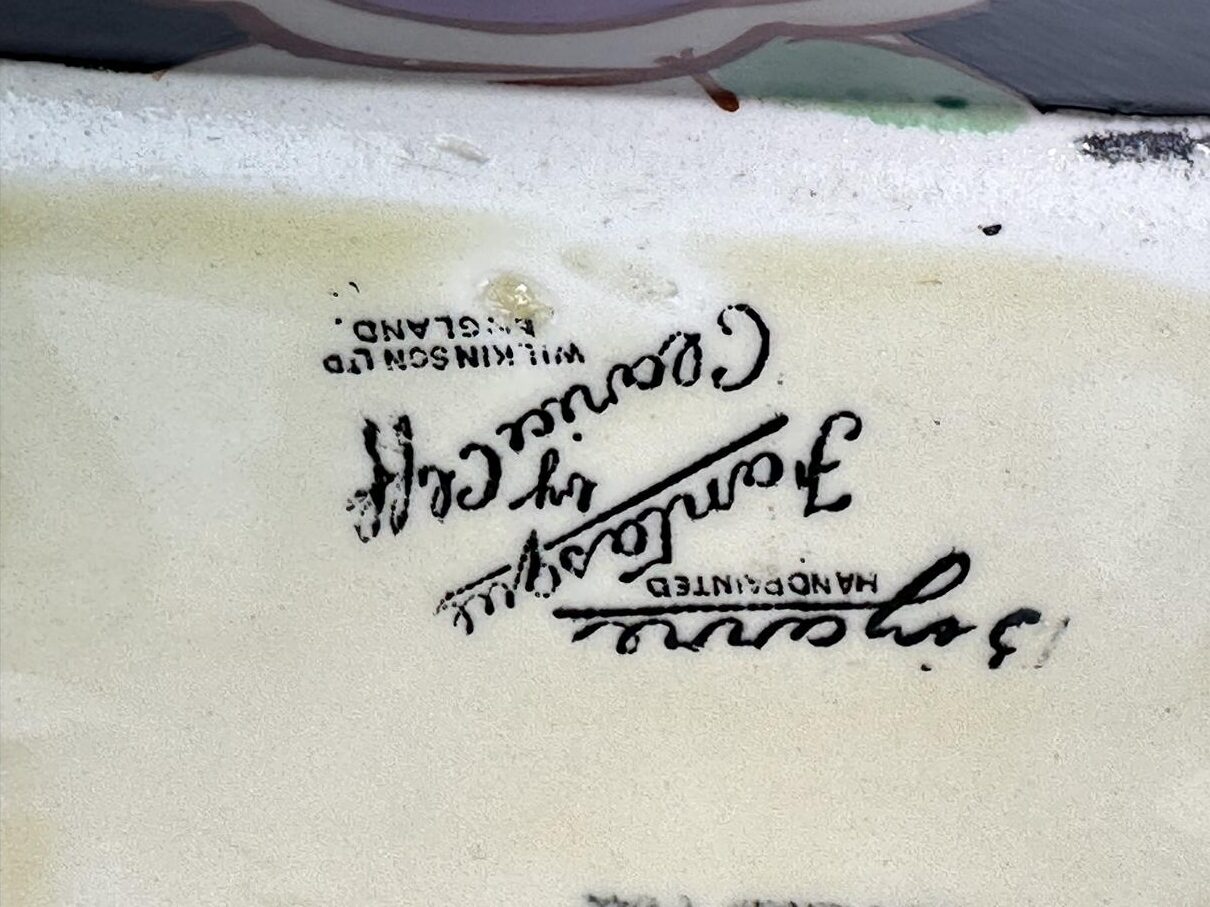 Bizarre
HANDPAINTED
Fantasque
by
Clarice Cliff
WILKINSON LTD
ENGLAND.